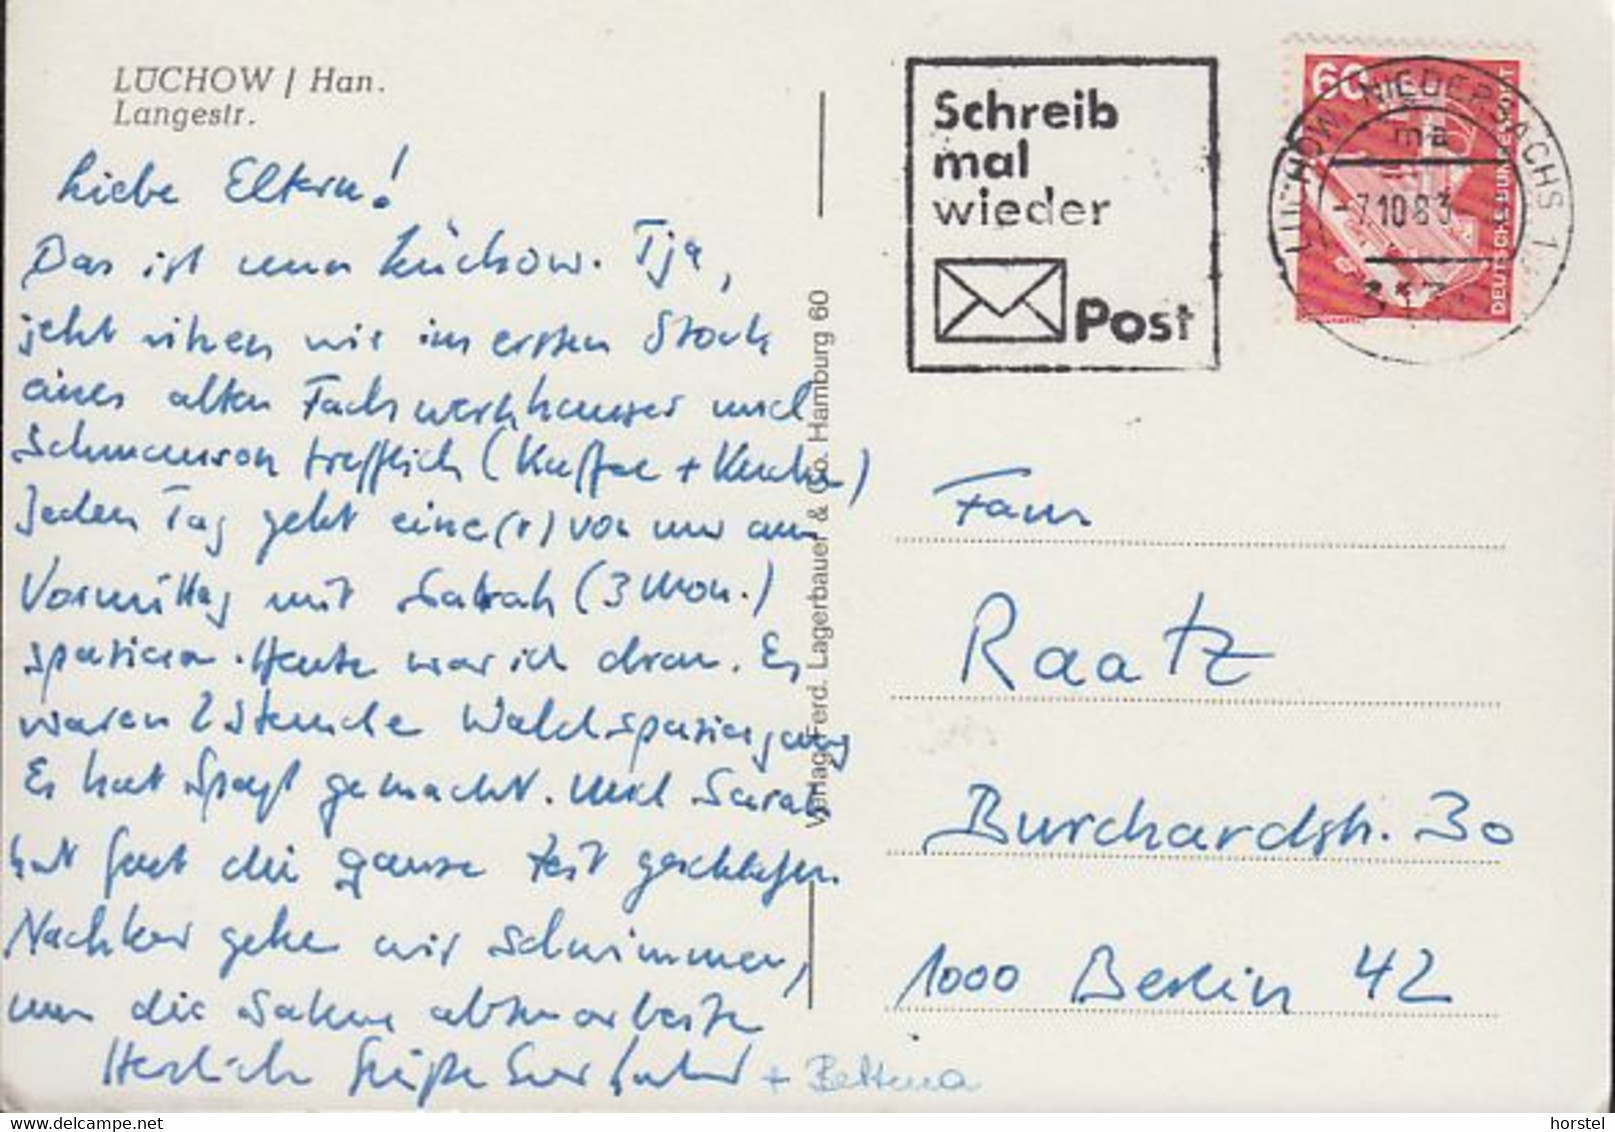 LÜCHOW / Han.
Langestr.
Liebe Eltern!
Das ist nun Lüchow. Tja,
jetzt sitzen wir im ersten Stock
eines alten Fachwerkhauses und
schmausen trefflich (Kaffee + Kuchen)
Jeden Tag geht eine(r) von uns am
Vormittag mit Sarah (3 Mon.)
spazieren. Heute war ich dran. Es
waren 2 Stunde Waldspaziergang
Es hat Spaß gemacht. Und Sarah
hat fast die ganze Zeit geschlafen.
Nachher gehen wir schwimmen,
um die Sahne abzuarbeiten
Herzlich Grüßt Euer + Bettina
Verlag Ferd. Lagerbauer & Co. Hamburg 60
Schreib
mal
wieder
Post
60
DEUTSCHE BUNDESPOST
LÜCHOW, NIEDERSACHS 1
ma
-7.10.83
Fam
Raatz
Burchardstr. 30
1000 Berlin 42
horstel
www.delcampe.net